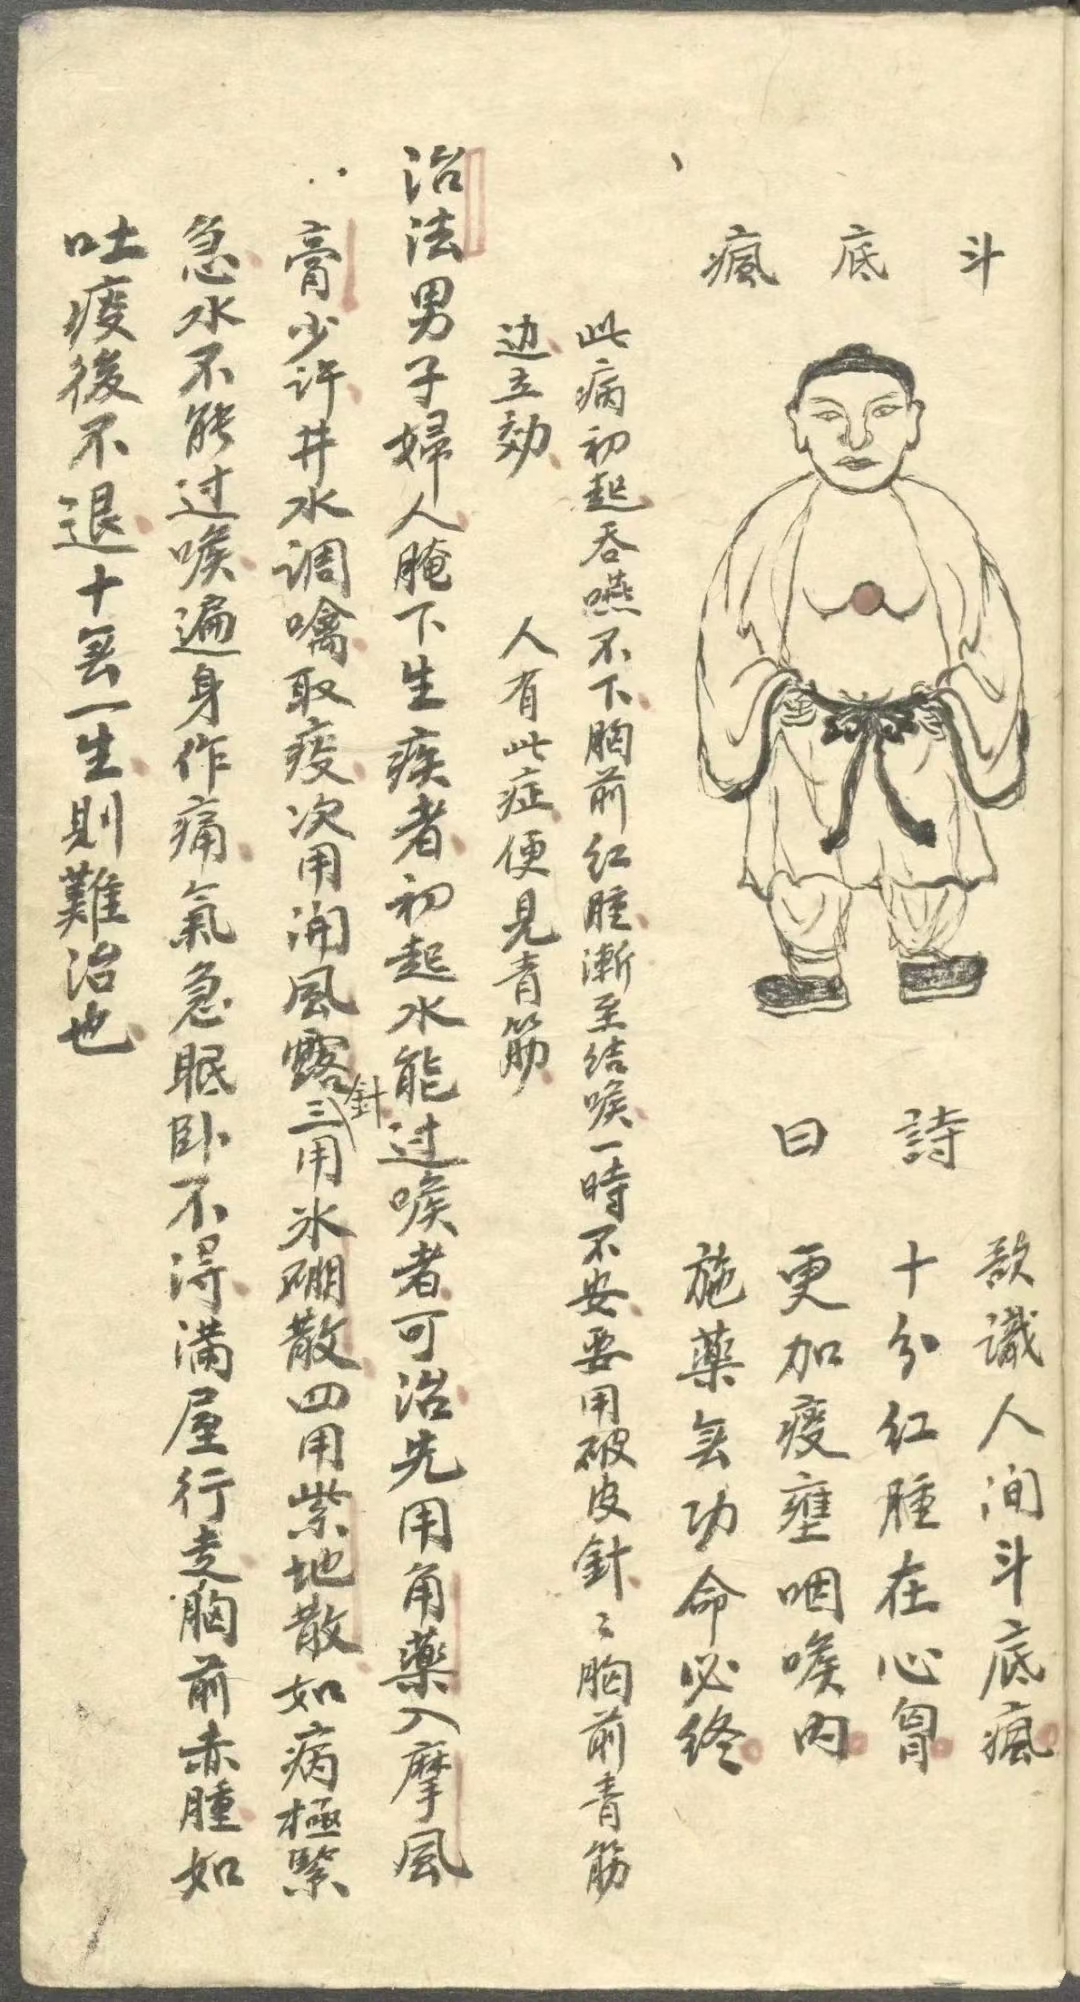 斗底瘋
詩曰
欲識人间斗底瘋
十分红腫在心胷
更加痰壅咽喉内
施藥無功命必终
此病初起吞嚥不下胸前红腫漸至结喉一時不安要用破皮針〻胸前青筋
边立効 人有此症便見青筋
治法男子婦人腌下生疾者初起水能过喉者可治先用角藥入摩風
膏少许井水调噙取痰次用開風露針三用冰硼散四用紫地散如病極緊
急水不能过喉遍身作痛氣急眠卧不得满屋行走胸前赤腫如
吐痰後不退十無一生則難治也